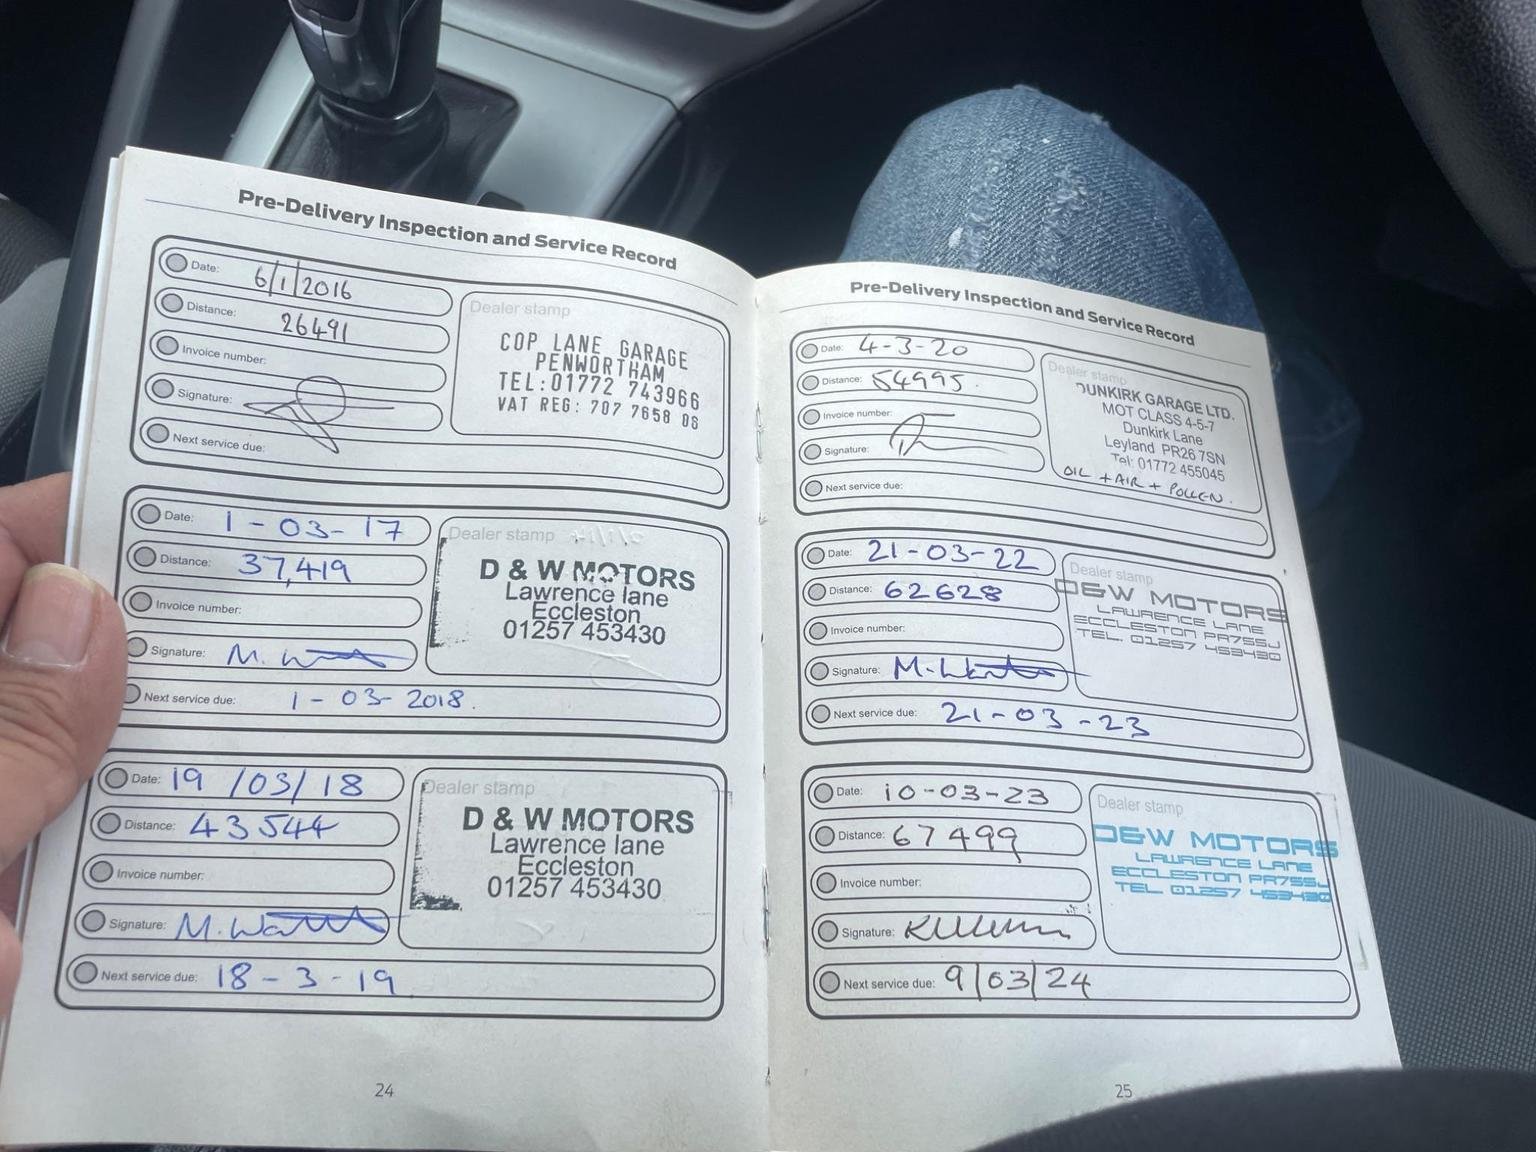 Pre-Delivery Inspection and Service Record
Date: 6/1/2016
Distance: 26491
Invoice number:
Signature:
Next service due:
Dealer stamp
COP LANE GARAGE
PENWORTHAM
TEL:01772 743966
VAT REG: 707 7658 06
Date: 1-03-17
Distance: 37,419
Invoice number:
Signature: M.
Next service due: 1-03-2018.
Dealer stamp
D & W MOTORS
Lawrence lane
Eccleston
01257 453430
Date: 19/03/18
Distance: 43544
Invoice number:
Signature: M.
Next service due: 18-3-19
Dealer stamp
D & W MOTORS
Lawrence lane
Eccleston
01257 453430
24
Pre-Delivery Inspection and Service Record
Date: 4-3-20
Distance: 54995.
Invoice number:
Signature:
Next service due:
Dealer stamp
DUNKIRK GARAGE LTD.
MOT CLASS 4-5-7
Dunkirk Lane
Leyland PR26 7SN
Tel: 01772 455045
OIL + AIR + POLLEN.
Date: 21-03-22
Distance: 62628
Invoice number:
Signature: M.
Next service due: 21-03-23
Dealer stamp
D&W MOTORS
LAWRENCE LANE
ECCLESTON PR75SJ
TEL. 01257 453430
Date: 10-03-23
Distance: 67499
Invoice number:
Signature:
Next service due: 9/03/24
Dealer stamp
D&W MOTORS
LAWRENCE LANE
ECCLESTON PR75SJ
TEL. 01257 453430
25